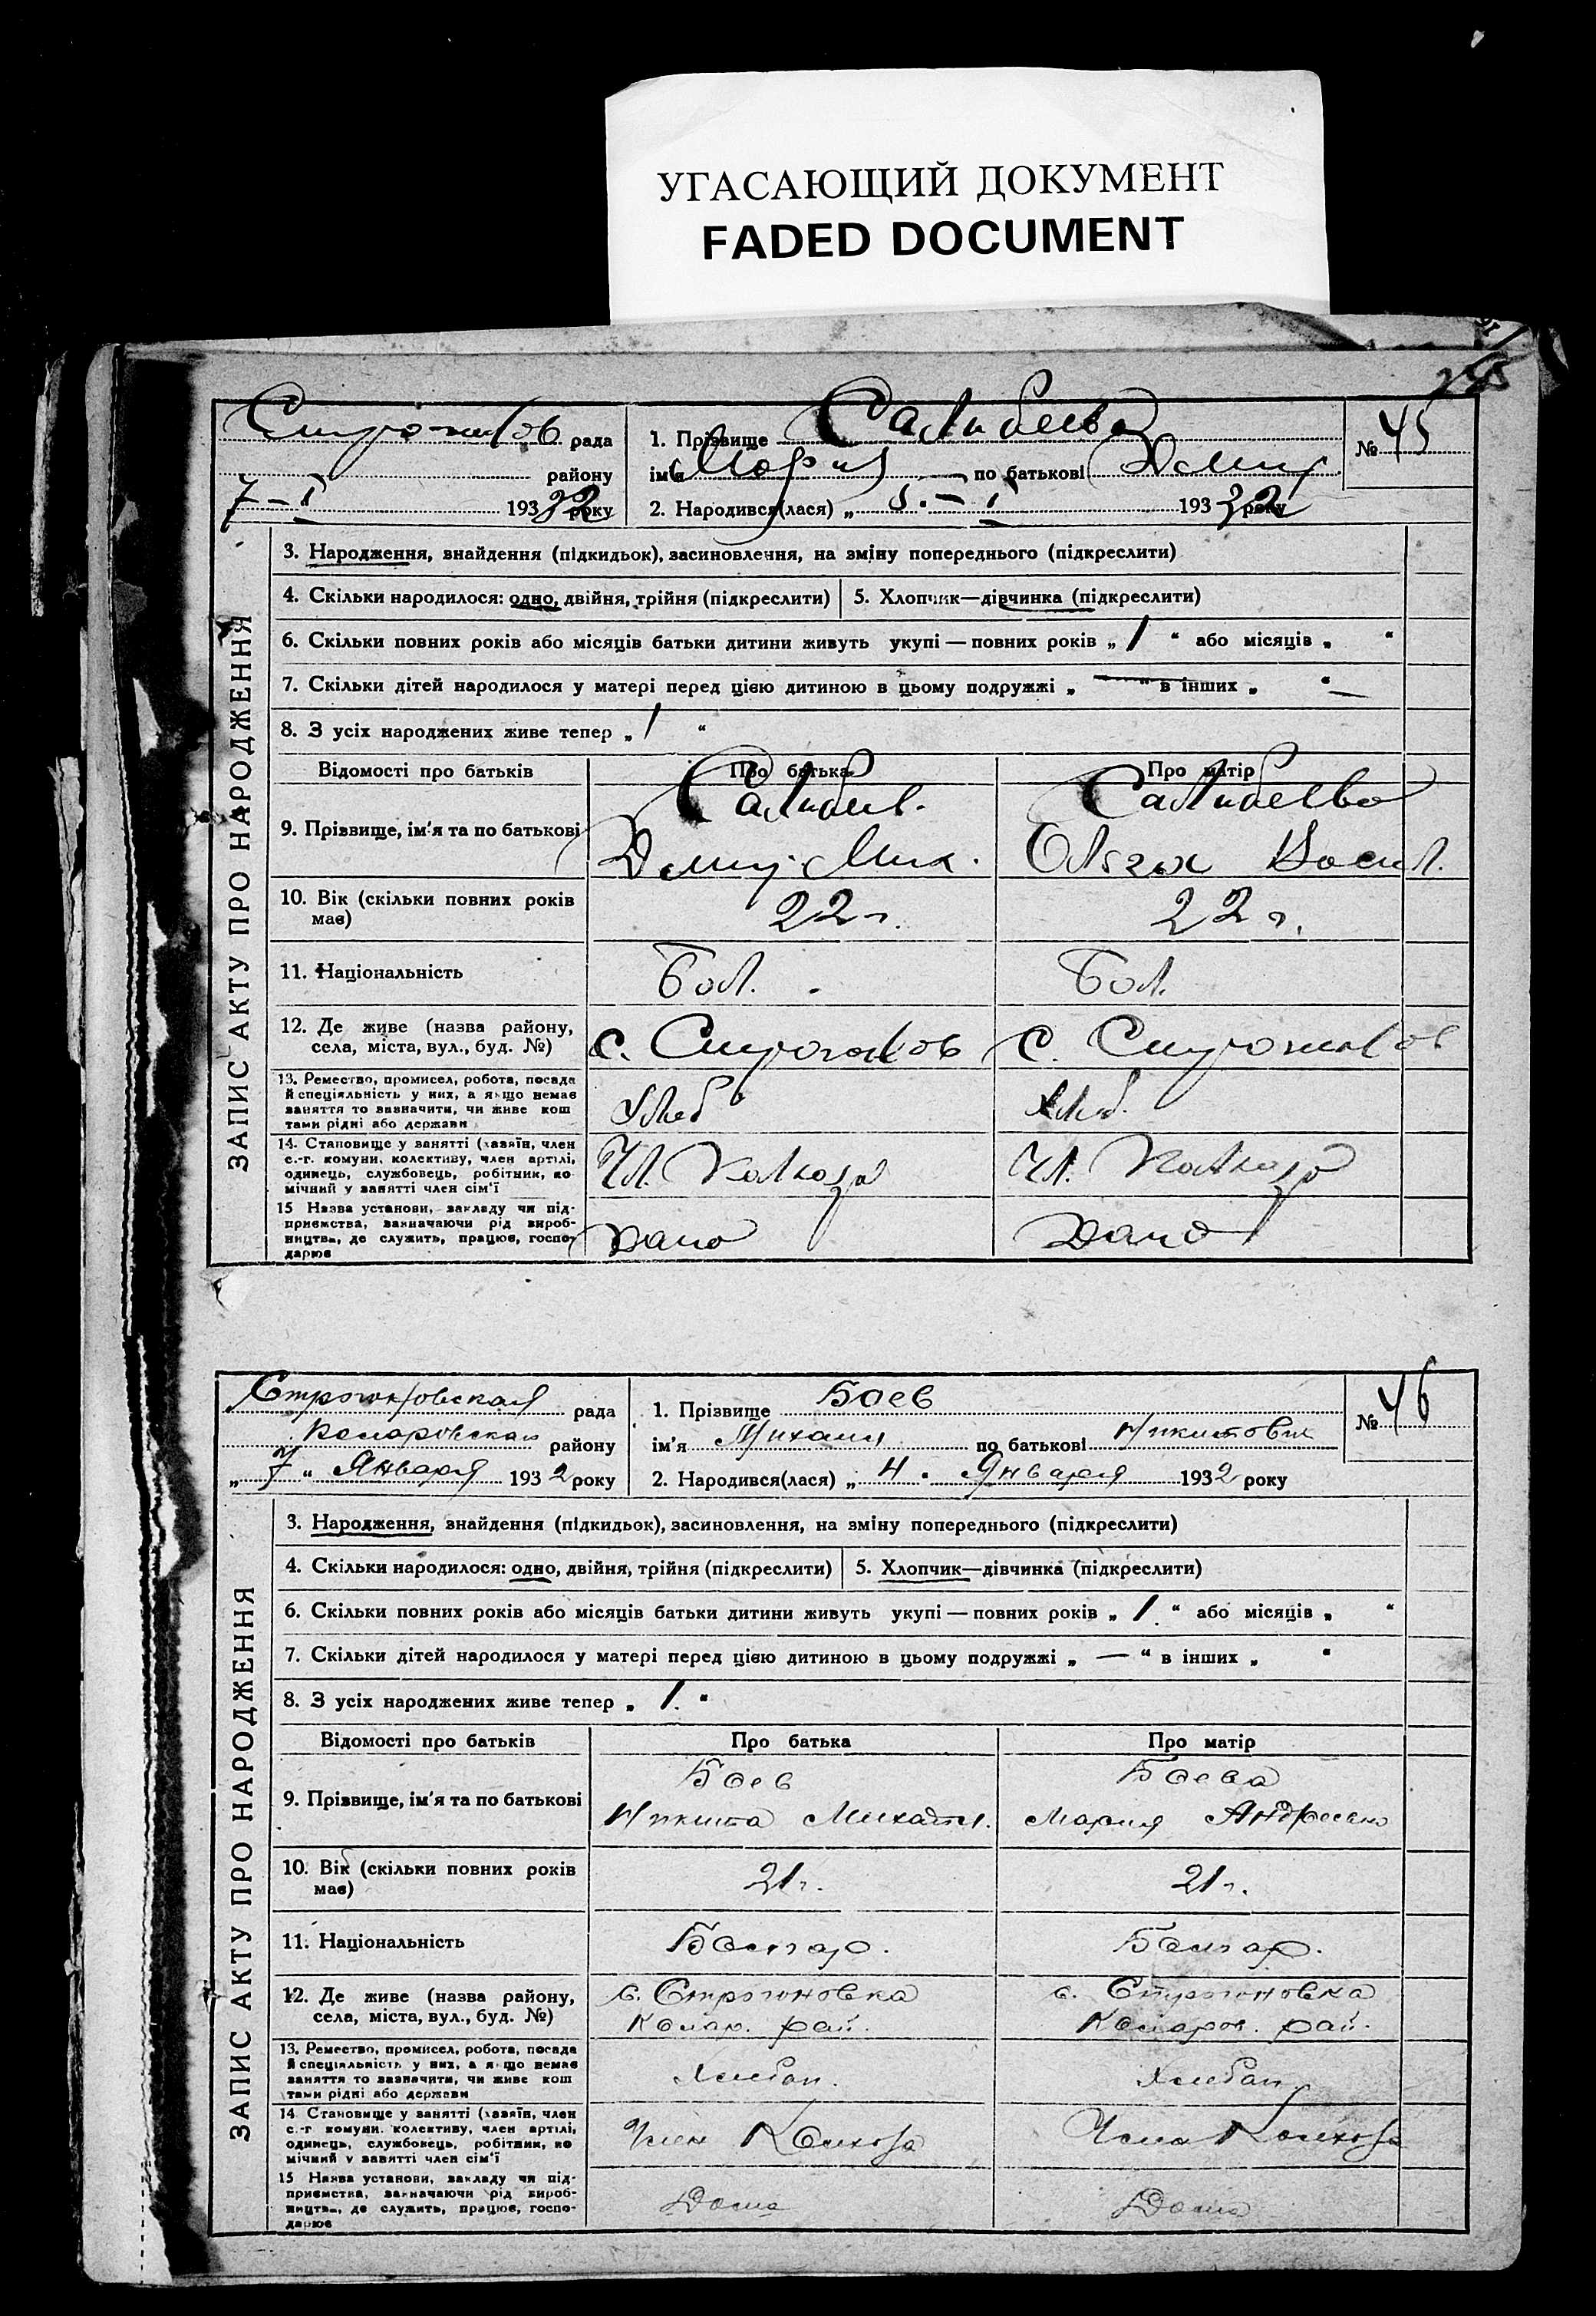 УГАСАЮЩИЙ ДОКУМЕНТ
FADED DOCUMENT
рада
району
7–I 1932 року
1. Прізвище Салибеева
ім'я Мария по батькові Дмит
2. Народився(лася) „ 5 – I 1932 року
№ 45
ЗАПИС АКТУ ПРО НАРОДЖЕННЯ
3. Народження, знайдення (підкидьок), засиновлення, на зміну попереднього (підкреслити)
4. Скільки народилося: одно, двійня, трійня (підкреслити)
5. Хлопчик—дівчинка (підкреслити)
6. Скільки повних років або місяців батьки дитини живуть укупі — повних років „ 1 “ або місяців „ “
7. Скільки дітей народилося у матері перед цією дитиною в цьому подружжі „ — “ в інших „ “ —
8. З усіх народжених живе тепер „ 1 “
Відомості про батьків
Про батька
Про матір
9. Прізвище, ім'я та по батькові
Салибеев.
Дмит. Мих.
Салибеева
Ольга Васил.
10. Вік (скільки повних років
має)
22 г.
22 г.
11. Національність
Бол.
Бол.
12. Де живе (назва району,
села, міста, вул., буд. №)
с.
с.
13. Ремество, промисел, робота, посада
й спеціяльність у них, а якщо немає
заняття то вазначити, чи живе кош
тами рідні або держави
Хлеб
Хлеб.
14. Становище у занятті (хазяїн, член
с.-г. комуни, колективу, член артілі,
одинець, службовець, робітник, по
мічний у занятті член сім'ї
Чл. Колхоза
Чл. Колхоза
15 Назва установи, закладу чи під-
приємства, зазначаючи рід вироб-
ництва, де служить, працює, госпо-
дарює
Дома
Дома
Строгоновская рада
Коларовская району
„ 7 “ Января 1932 року
1. Прізвище Боев
ім'я Михаил по батькові Никитович
2. Народився(лася) „ 4 . Января 1932 року
№ 46
ЗАПИС АКТУ ПРО НАРОДЖЕННЯ
3. Народження, знайдення (підкидьок), засиновлення, на зміну попереднього (підкреслити)
4. Скільки народилося: одно, двійня, трійня (підкреслити)
5. Хлопчик—дівчинка (підкреслити)
6. Скільки повних років або місяців батьки дитини живуть укупі — повних років „ 1. “ або місяців „ “
7. Скільки дітей народилося у матері перед цією дитиною в цьому подружжі „ — “ в інших „ “
8. З усіх народжених живе тепер „ 1. “
Відомості про батьків
Про батька
Про матір
9. Прізвище, ім'я та по батькові
Боев
Никита Михайл.
Боева
Мария Андреевна
10. Вік (скільки повних років
має)
21 г.
21 г.
11. Національність
Болгар.
Болгар.
12. Де живе (назва району,
села, міста, вул., буд. №)
с. Строгоновка
Колар. рай.
с. Строгоновка
Коларов. рай.
13. Ремество, промисел, робота, посада
й спеціяльність у них, а якщо немає
заняття то зазначити, чи живе кош
тами рідні або держави
Хлебоп.
Хлебоп.
14 Становище у занятті (хазяїн, член
с.-г комуни, колективу, член артілі,
одинець, службовець, робітник, по
мічний у занятті член сім'ї
Член Колхоза
Член Колхоза
15 Назва установи, закладу чи під-
приємства, зазначаючи рід вироб-
ництва, де служить, працює, госпо-
дарює
Дома
Дома